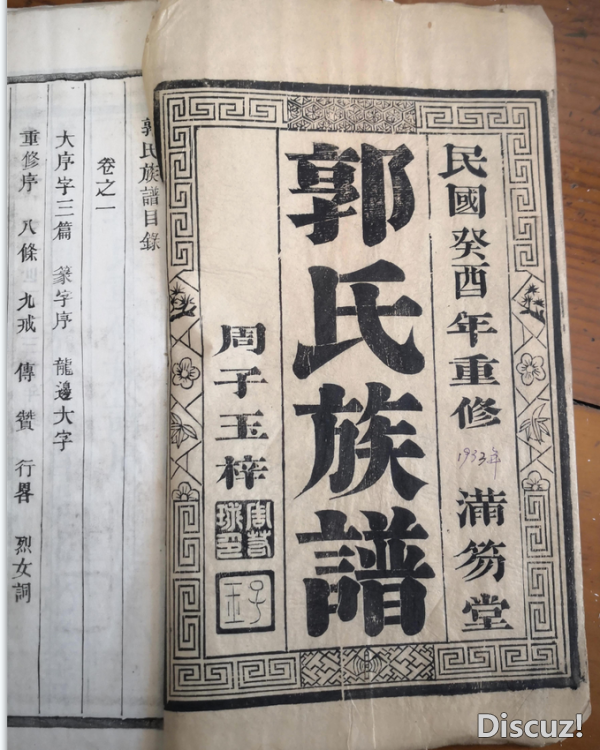 民國癸酉年重修
1933年
滿笏堂
郭氏族譜
周子玉梓
子玉
郭氏族譜目錄
卷之一
大序字三篇 篆字序 龍邊大字
重修序 八條 九戒 傳 贊 行畧 烈女詞
Discuz!